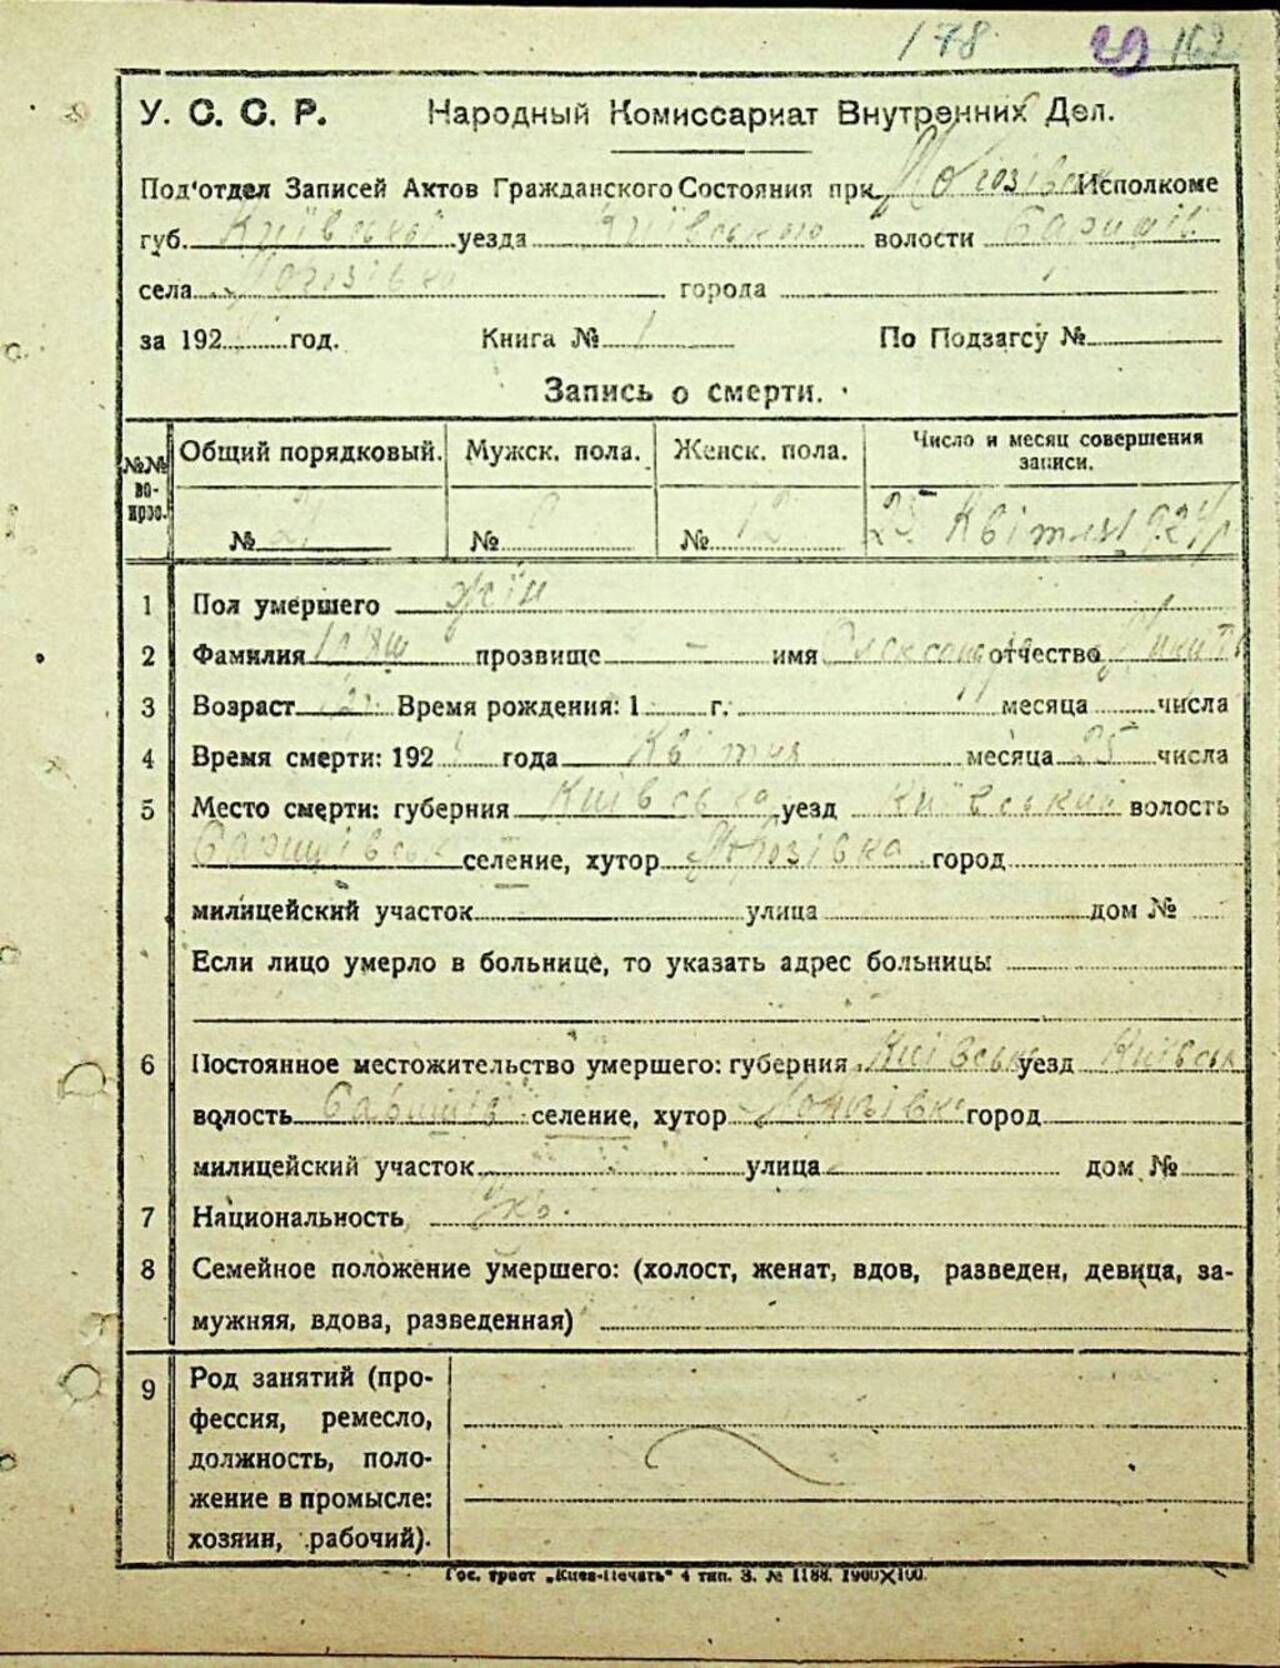 178 162
У. С. С. Р. Народный Комиссариат Внутренних Дел.
Под'отдел Записей Актов Гражданского Состояния при Исполкоме
губ. Київської уезда Київського волости Баришів
села Морозівка города
за 192 год. Книга № 1 По Подзагсу №
Запись о смерти.
№№ вопрос. Общий порядковый. Мужск. пола. Женск. пола. Число и месяц совершения записи.
№ 21 № № 12 25 Квітня 1924 р
1 Пол умершего жін
2 Фамилия прозвище - имя Олександра отчество Микит
3 Возраст Время рождения: 1 г. месяца числа
4 Время смерти: 192 года Квітня месяца 25 числа
5 Место смерти: губерния Київська уезд Київський волость
Баришівськ селение, хутор Морозівка город
милицейский участок улица дом №
Если лицо умерло в больнице, то указать адрес больницы
6 Постоянное местожительство умершего: губерния Київськ уезд Київськ
волость Баришів селение, хутор Морозівка город
милицейский участок улица дом №
7 Национальность Укр.
8 Семейное положение умершего: (холост, женат, вдов, разведен, девица, за-
мужняя, вдова, разведенная)
9 Род занятий (про-
фессия, ремесло,
должность, поло-
жение в промысле:
хозяин, рабочий).
Гос. трест „Киев-Печать“ 4 тип. З. № 1188. 1900×100.